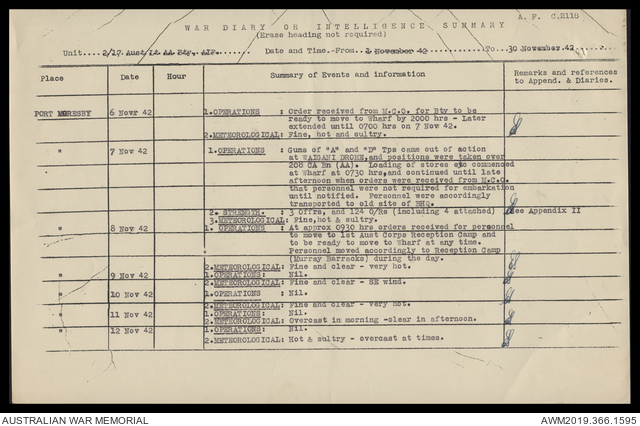 A. F. C.2118
WAR DIARY OR INTELLIGENCE SUMMARY
(Erase heading not required)
Unit 2/17 Aust Lt AA Bty, AIF. Date and Time.-From 1 November 42 To 30 November 42
Place Date Hour Summary of Events and information Remarks and references
to Append. & Diaries.
PORT MORESBY 6 Novr 42 1.OPERATIONS : Order received from M.C.O. for Bty to be
ready to move to Wharf by 2000 hrs - Later
extended until 0700 hrs on 7 Nov 42.
2.METEOROLOGICAL: Fine, hot and sultry.
" 7 Nov 42 1.OPERATIONS : Guns of "A" and "D" Tps came out of action
at WAIGANI DROME, and positions were taken over
208 CA Bn (AA). Loading of stores commended
at Wharf at 0730 hrs, and continued until late
afternoon when orders were received from M.C.O.
that personnel were not required for embarkation
until notified. Personnel were accordingly
transported to old site of BHQ.
2. STRENGTH. : 3 Offrs, and 124 O/Rs (including 4 attached) See Appendix II
3.METEOROLOGICAL: Fine, hot & sultry.
" 8 Nov 42 1. OPERATIONS : At approx 0930 hrs orders received for personnel
to move to 1st Aust Corps Reception Camp and
to be ready to move to Wharf at any time.
Personnel moved accordingly to Reception Camp
(Murray Barracks) during the day.
2.METEOROLOGICAL: Fine and clear - very hot.
" 9 Nov 42 1.OPERATIONS: Nil.
2.METEOROLOGICAL: Fine and clear - SE wind.
" 10 Nov 42 1.OPERATIONS : Nil.
2.METEOROLOGICAL: Fine and clear - very hot.
" 11 Nov 42 1.OPERATIONS: Nil.
2.METEOROLOGICAL: Overcast in morning -clear in afternoon.
" 12 Nov 42 1.OPERATIONS: Nil.
2.METEOROLOGICAL: Hot & sultry - overcast at times.
AUSTRALIAN WAR MEMORIAL AWM2019.366.1595